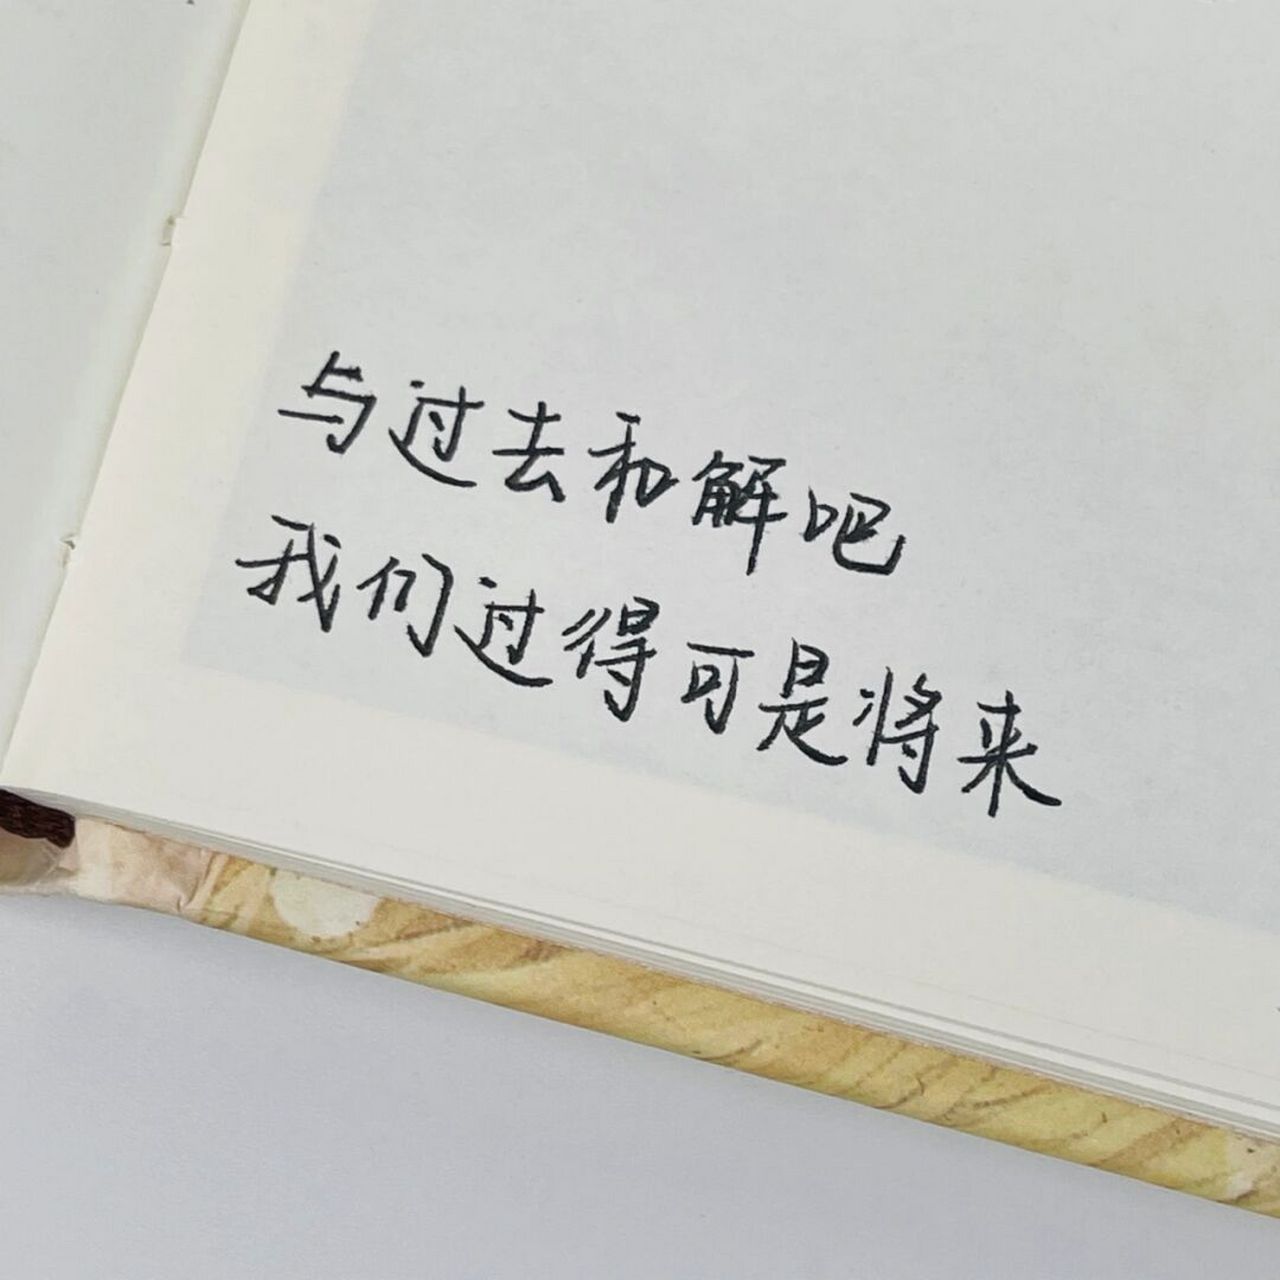 与过去和解吧
我们过得可是将来